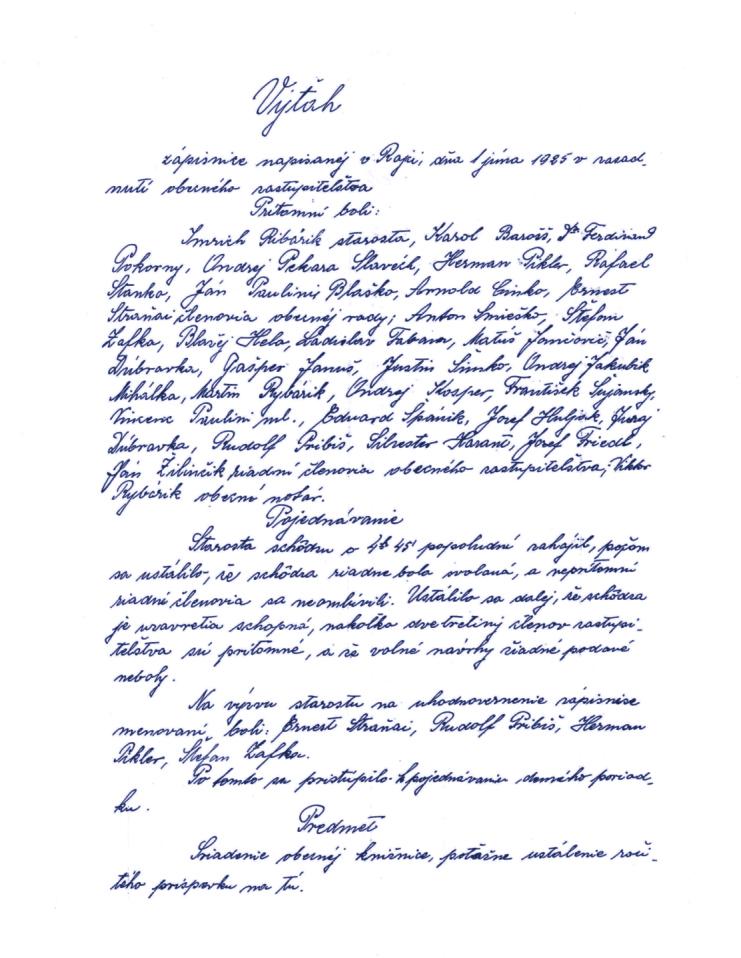 Výťah
zápisnice napisanéj v Rajci, dňa 1 júna 1925 v zasad-
nutí obecného zastupitelštva
Prítomní boli:
Imrich Ribárik starosta, Karol Baroš, Dr Ferdinand
Pokorny, Ondrej Pekara Slavčíl, Herman Pikler, Rafael
Stanko, Ján Paulinij Blaško, Arnold Cinko, Ernest
Straňai členovia obecnéj rady; Anton Smieško, Štefan
Zafka, Blažej Hela, Ladislav Fabian, Matúš Jančovič, Ján
Dúbravka, Gašper Januš, Justin Šimko, Ondrej Jakubík
Mihálka, Martin Rybárik, Ondrej Kosper, František Šujanský,
Vincenc Paulini ml., Eduard Špánik, Jozef Huljak, Juraj
Dúbravka, Rudolf Pribiš, Silvester Haranč, Jozef Friedl,
Ján Žilinčík riadní členovia obecného zastupitelštva; Viktor
Rybárik obecní notár.
Pojednávanie
Starosta schôdzu o 4h 45' popoludní zahájil, počom
sa ustálilo, že schôdza riadne bola svolaná, a neprítomní
riadní členovia sa neomluvili. Ustálilo sa dalej, že schôdza
je uzavretia schopná, nakolko dve tretiny členov zastupi-
telštva sú prítomné, a že volné návrhy žiadné podavé
neboly.
Na výzvu starostu na uhodnovernenie zápisnice
menovaní boli: Ernest Straňai, Rudolf Pribiš, Herman
Pikler, Štefan Zafka.
Po tomto sa pristúpilo k pojednávaniu denného poriad-
ku.
Predmet
Sriadenie obecnéj knižnice, poťažne ustálenie roči-
tého príspevku na tú.